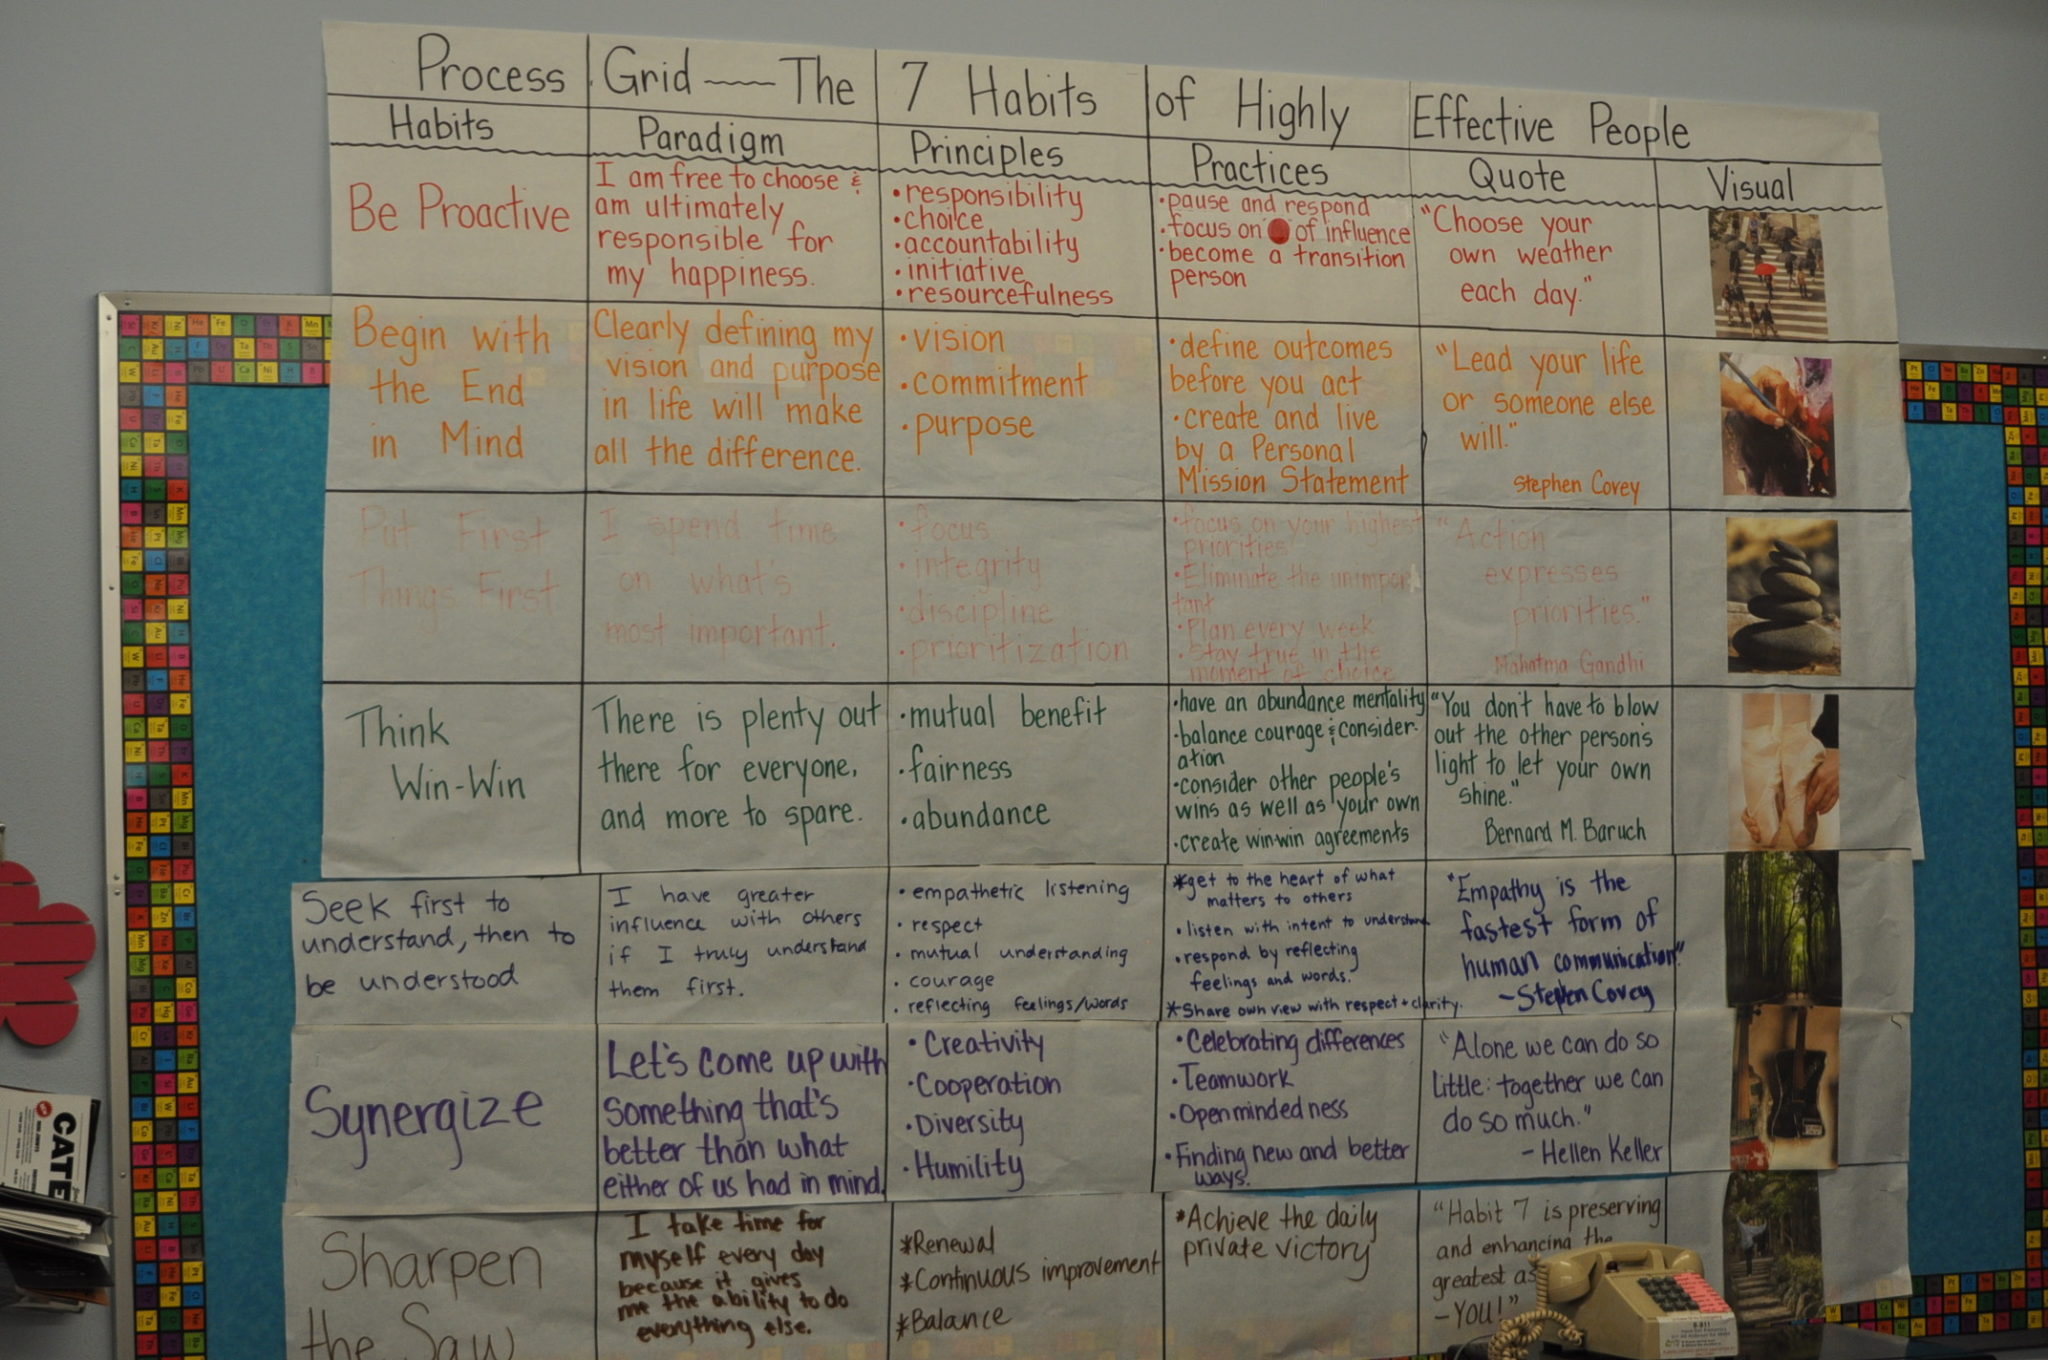 Process Grid — The 7 Habits of Highly Effective People
Habits
Paradigm
Principles
Practices
Quote
Visual
Be Proactive
I am free to choose &
am ultimately
responsible for
my happiness.
• responsibility
• choice
• accountability
• initiative
• resourcefulness
• pause and respond
• focus on of influence
• become a transition
person
"Choose your
own weather
each day."
Begin with
the End
in Mind
Clearly defining my
vision and purpose
in life will make
all the difference.
• vision
• commitment
• purpose
• define outcomes
before you act
• create and live
by a Personal
Mission Statement
"Lead your life
or someone else
will."
Stephen Covey
Put First
Things First
I spend time
on what's
most important.
• focus
• integrity
• discipline
• prioritization
• focus on your highest
priorities
• Eliminate the unimpor
tant
• Plan every week
• Stay true in the
moment of choice
"Action
expresses
priorities."
Mahatma Gandhi
Think
Win-Win
There is plenty out
there for everyone,
and more to spare.
• mutual benefit
• fairness
• abundance
• have an abundance mentality
• balance courage & consider-
ation
• consider other people's
wins as well as your own
• create win-win agreements
"You don't have to blow
out the other person's
light to let your own
shine."
Bernard M. Baruch
Seek first to
understand, then to
be understood
I have greater
influence with others
if I truly understand
them first.
• empathetic listening
• respect
• mutual understanding
• courage
• reflecting feelings/words
*get to the heart of what
matters to others
• listen with intent to understand
• respond by reflecting
feelings and words.
*Share own view with respect + clarity.
"Empathy is the
fastest form of
human communication"
~Stephen Covey
Synergize
Let's come up with
something that's
better than what
either of us had in mind.
• Creativity
• Cooperation
• Diversity
• Humility
• Celebrating differences
• Teamwork
• Openmindedness
• Finding new and better
ways.
"Alone we can do so
little: together we can
do so much."
- Hellen Keller
Sharpen
the Saw
I take time for
myself every day
because it gives
me the ability to do
everything else.
*Renewal
*Continuous improvement
*Balance
*Achieve the daily
private victory
"Habit 7 is preserving
and enhancing the
greatest as
-YOU!"
CATE